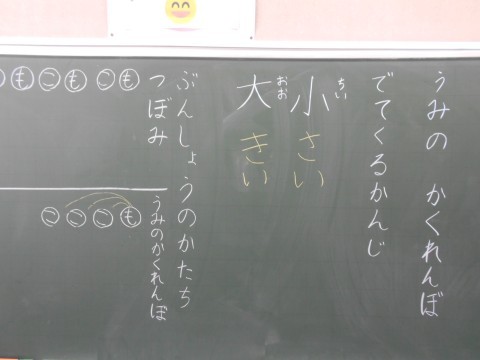 うみの かくれんぼ
でてくるかんじ
小さい
ちい
大きい
おお
ぶんしょうのかたち
つぼみ
もこ もこ もこ
うみのかくれんぼ
もこここ